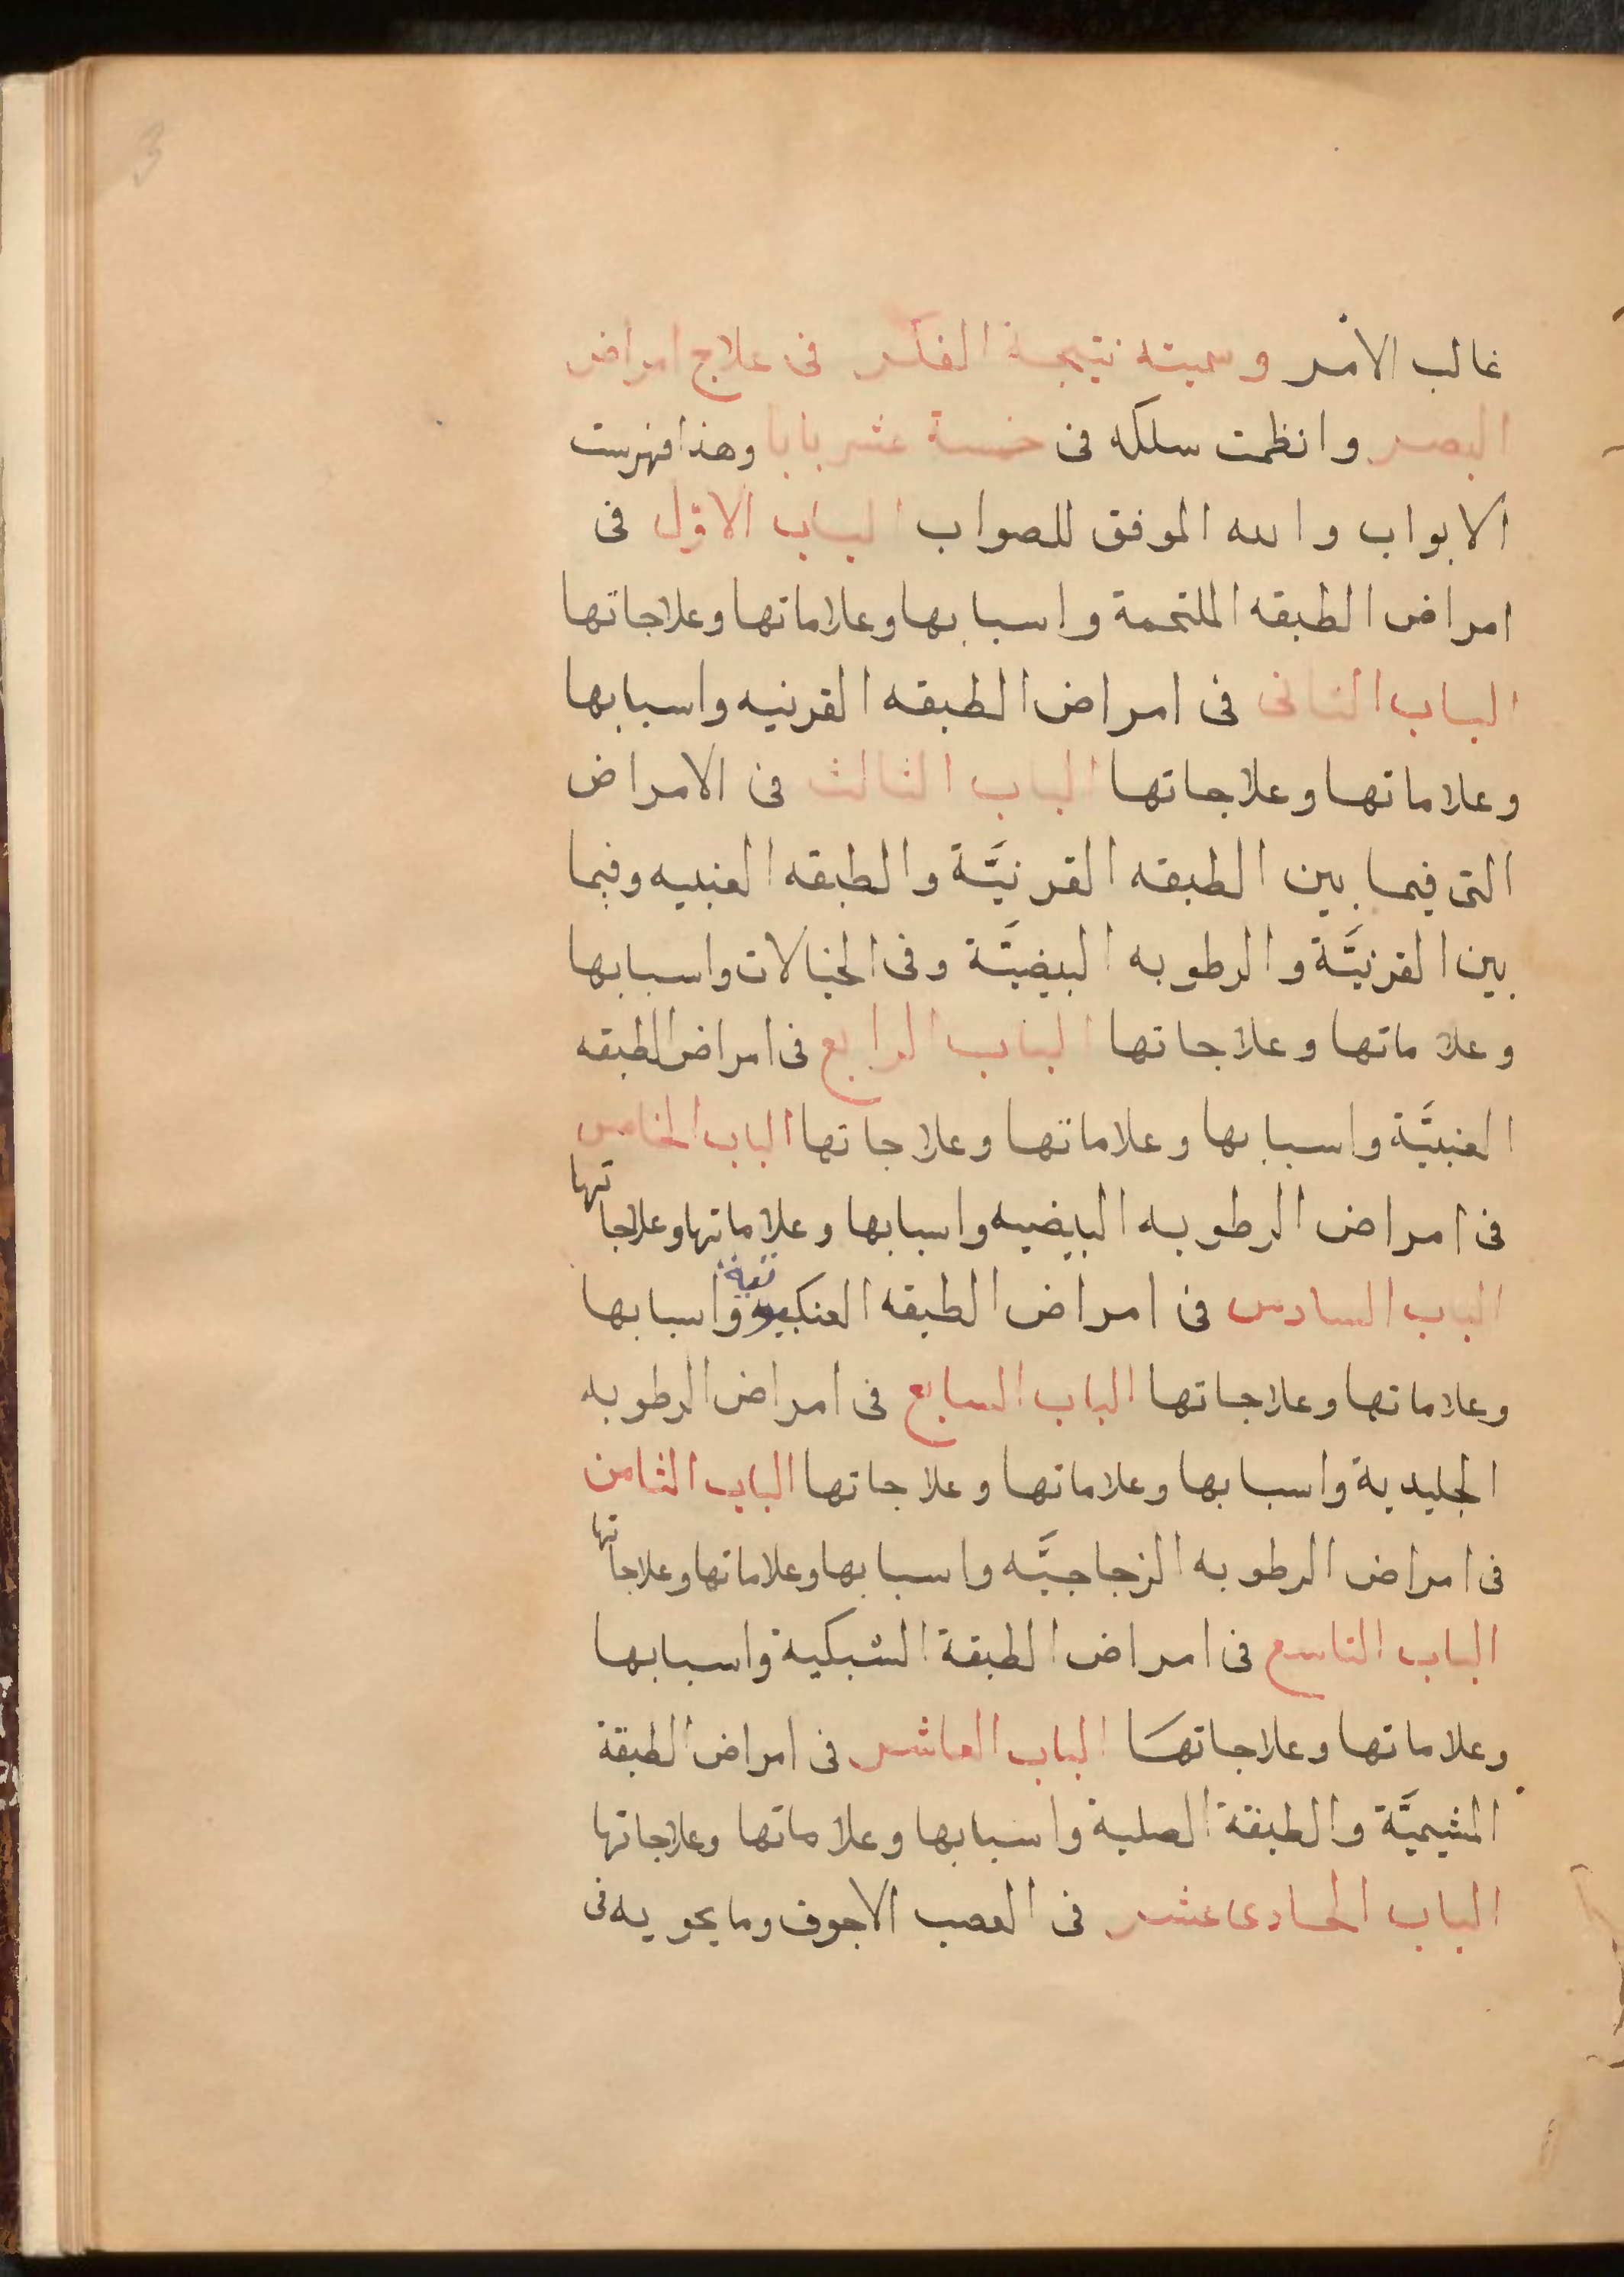 3
غالب الامر وسميته نتيجة الفكر فى علاج امراض
البصر وانظمت سلكه فى خمسة عشر بابا وهذا فهرست
الابواب والله الموفق للصواب الباب الاوّل فى
امراض الطبقه الملتحمة واسبابها وعلاماتها وعلاجاتها
الباب الثانى فى امراض الطبقه القرنيه واسبابها
وعلاماتها وعلاجاتها الباب الثالث فى الامراض
التى فيما بين الطبقه القرنيَّة والطبقه العنبيه وفيما
بين القرنيَّة والرطوبه البيضيَّة وفى الخيالات واسبابها
وعلاماتها وعلاجاتها الباب الرابع فى امراض الطبقه
العنبيَّة واسبابها وعلاماتها وعلاجاتها الباب الخامس
فى امراض الرطوبه البيضيه واسبابها وعلاماتها وعلاجاتها
الباب السادس فى امراض الطبقه العنكبوتية واسبابها
وعلاماتها وعلاجاتها الباب السابع فى امراض الرطوبه
الجليدية واسبابها وعلاماتها وعلاجاتها الباب الثامن
فى امراض الرطوبه الزجاجيَّه واسبابها وعلاماتها وعلاجاتها
الباب التاسع فى امراض الطبقة الشبكية واسبابها
وعلاماتها وعلاجاتهَا الباب العاشر فى امراض الطبقة
المشيميَّة والطبقة الصلبة واسبابها وعلاماتها وعلاجاتها
الباب الحادى عشر فى العصب الاجوف وما يحويه فى